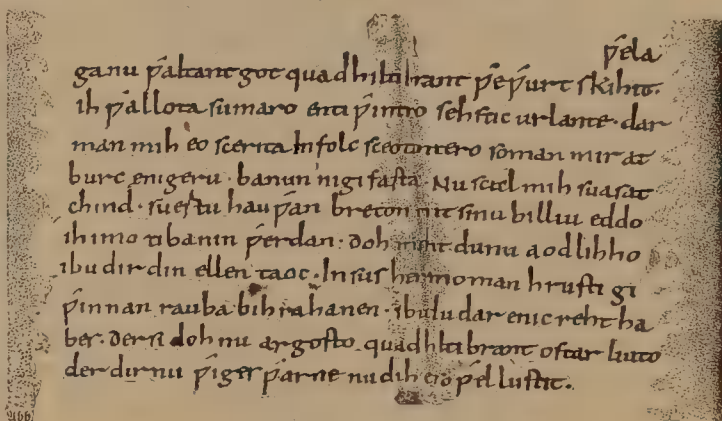 ƿ́ela
ganu ƿ́altant got quad hiltibrant ƿ́eƿ́urt skihit.
ih ƿ́allota sumaro enti ƿ́intro sehstic urlante· dar
man mih eo scerita Infolc sceotantero soman mir at
burc enigeru· banun nigi fasta· Nu scal mih suasat
chind· suertu hauƿ́an breton mit sinu billiu eddo
ih imo ti banin ƿ́erdan· doh maht du nu aodlihho
ibu dir din ellen taoc· In sus heremo man hrusti gi
ƿ́innan rauba bihrahanen· ibu du dar enic reht ha
ber· der si doh nu argosto quad hiltibrant ostar liuto
der dir nu ƿ́iges ƿ́arne nu dih es so ƿ́el lustit.